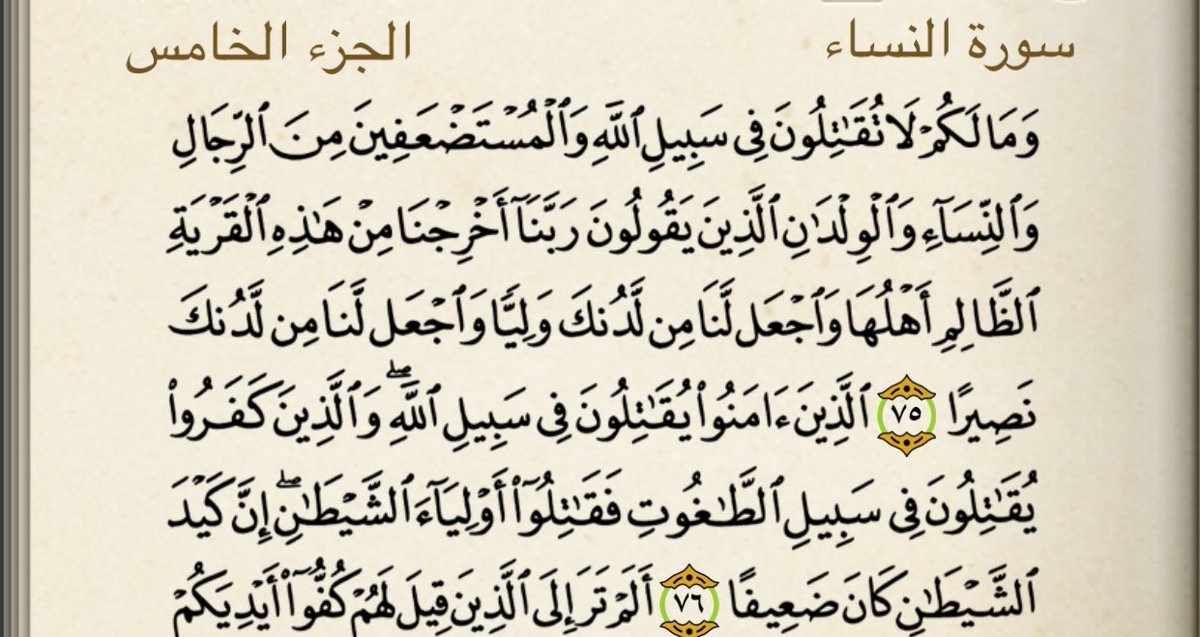 سورة النساء
الجزء الخامس
وَمَا لَكُمْ لَا تُقَٰتِلُونَ فِى سَبِيلِ ٱللَّهِ وَٱلْمُسْتَضْعَفِينَ مِنَ ٱلرِّجَالِ
وَٱلنِّسَآءِ وَٱلْوِلْدَٰنِ ٱلَّذِينَ يَقُولُونَ رَبَّنَآ أَخْرِجْنَا مِنْ هَٰذِهِ ٱلْقَرْيَةِ
ٱلظَّالِمِ أَهْلُهَا وَٱجْعَل لَّنَا مِن لَّدُنكَ وَلِيًّا وَٱجْعَل لَّنَا مِن لَّدُنكَ
نَصِيرًا ٧٥ ٱلَّذِينَ ءَامَنُوا۟ يُقَٰتِلُونَ فِى سَبِيلِ ٱللَّهِ ۖ وَٱلَّذِينَ كَفَرُوا۟
يُقَٰتِلُونَ فِى سَبِيلِ ٱلطَّٰغُوتِ فَقَٰتِلُوٓا۟ أَوْلِيَآءَ ٱلشَّيْطَٰنِ ۖ إِنَّ كَيْدَ
ٱلشَّيْطَٰنِ كَانَ ضَعِيفًا ٧٦ أَلَمْ تَرَ إِلَى ٱلَّذِينَ قِيلَ لَهُمْ كُفُّوٓا۟ أَيْدِيَكُمْ